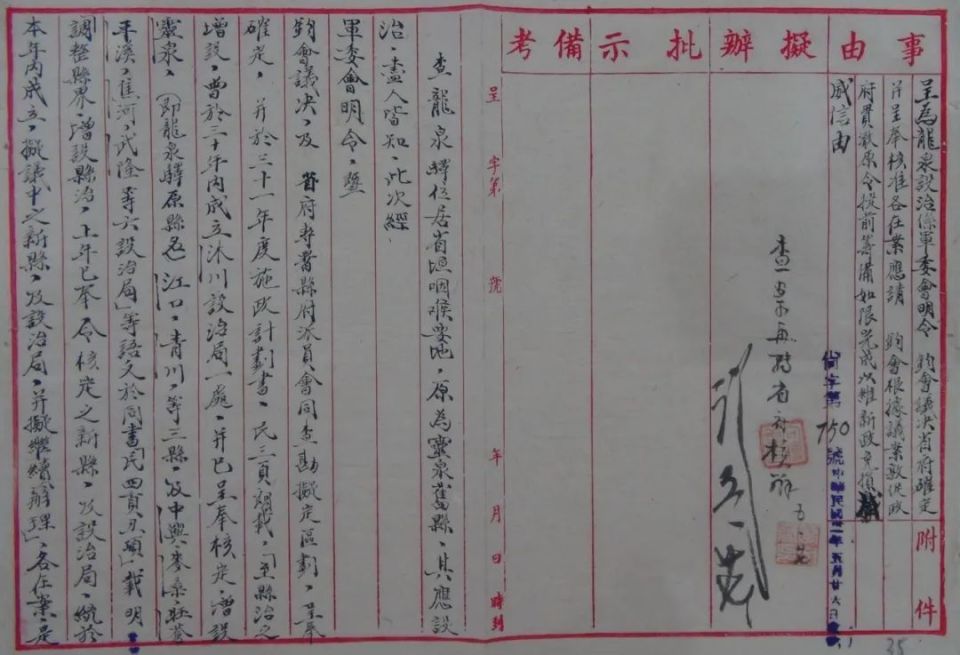 事由
擬辦
批示
備考
呈為龍泉設治係軍委會明令 鈞會議決省府確定
并呈奉核准各在案應請 鈞會根據議案敦促政
府貫澈原令提前籌備如限完成以維新政免損
威信由
附件
查案再轉省府核辦
尚字第750號中華民國卅一年五月廿八日
呈 字第 號
年 月 日 時到
查龍泉驛位居省垣咽喉要地，原為靈泉舊縣，其應設
治，盡人皆知，此次經
軍委會明令，暨
鈞會議決，及 省府專署縣府派員會同查勘擬定區劃，呈奉
確定，并於三十一年度施政計劃書，民三頁開載，「至縣治之
增設，曾於三十年內成立沐川設治局一處，并已呈奉核定，增設
靈泉，（即龍泉驛原縣名）江口，青川，等三縣，及中興，麥桑，旺蒼
平溪，焦河，武隆等六設治局」等語又於同書「民四頁丑項」載明
調整縣界，增設縣治，上年已奉 令核定之新縣，及設治局，統於
本年內成立，擬議中之新縣，及設治局，并擬繼續辦理」，各在案，是
35